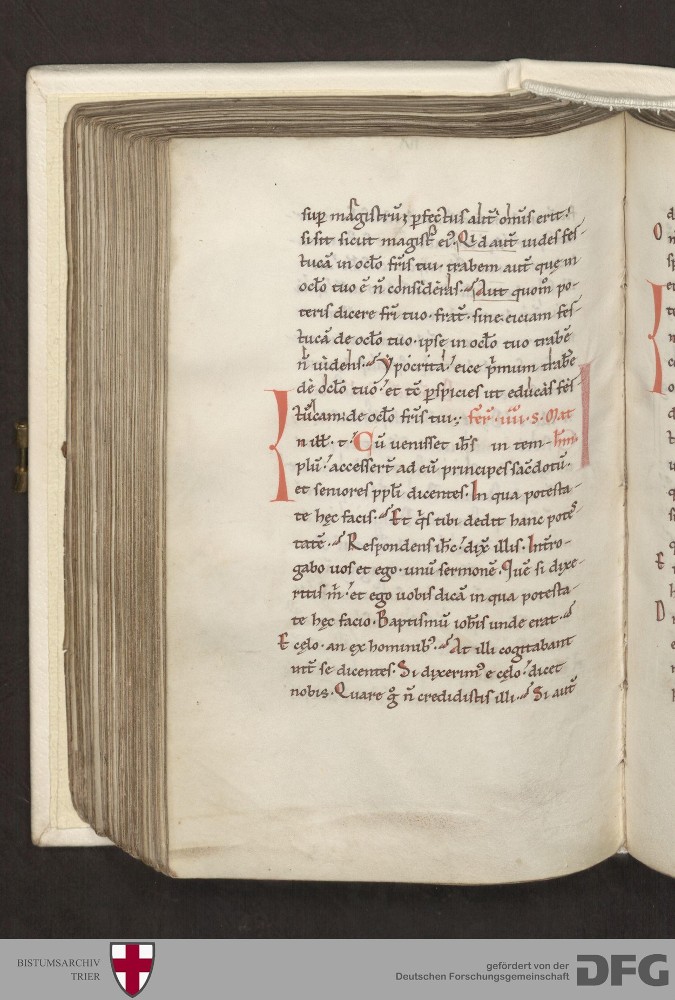 sup magistrū; ꝑfectus aut̄ om̄is erit!
si sit sicut magist̄ eiꝰ. Qid aut̄ uides fes-
tucā in oclo fr̄is tui. trabem aut̄ quę in
oclo tuo ē n̄ consideras. Aut quom̊ po-
teris dicere fr̄i tuo. frat̄. sine eiciam fes-
tucā de oclo tuo. ipse in oclo tuo trabē
n̄ uidens. Ypocrita! eice p̄mum trabē
de oclo tuo! et tc̄ ꝑspicies ut educas fes-
tucam; de oclo fr̄is tui. fer̄. iiii. s. Mat
n ill̄. t. Cū uenisset ih̄s in tem- hm̄.
plū! accessert̄ ad eū principes sac̄dotū.
et seniores ppl̄i dicentes. In qua potesta-
te hęc facis. Et q̄s tibi dedit hanc potes-
tatē. Respondens ih̄c! dix̄ illis. Int̄ro-
gabo uos et ego. unū sermonē. Quē si dixe-
ritis m̄! et ego uobis dicā in qua potesta-
te hęc facio. Baptismū ioh̄is unde erat.
E cęlo. an ex hominibꝰ. At illi cogitabant
int̄ se dicentes. Si dixerimꝰ e cęlo! dicet
nobis. Quare g̊ n̄ credidistis illi. Si aut̄
BISTUMSARCHIV
TRIER
gefördert von der
Deutschen Forschungsgemeinschaft
DFG